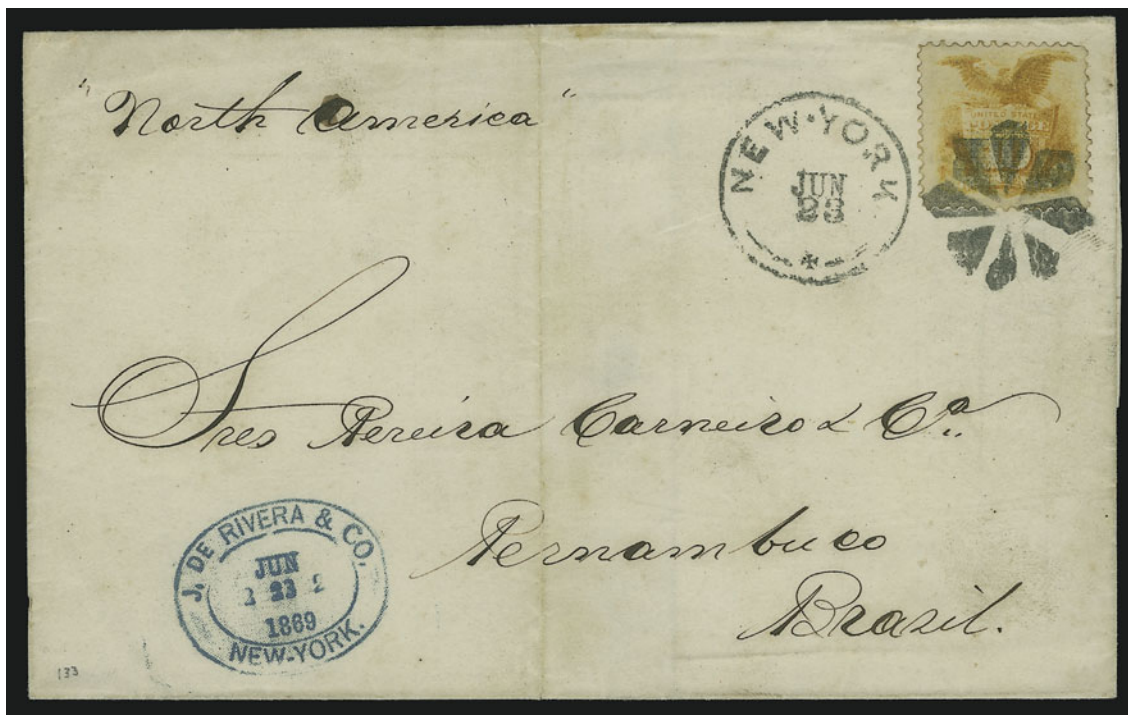 "North America"
NEW-YORK
JUN
23
UNITED STATES
Sres Pereira Carneiro & Cª.
Pernambuco
Brazil.
J. DE RIVERA & CO.
JUN
23
1869
NEW-YORK.
133